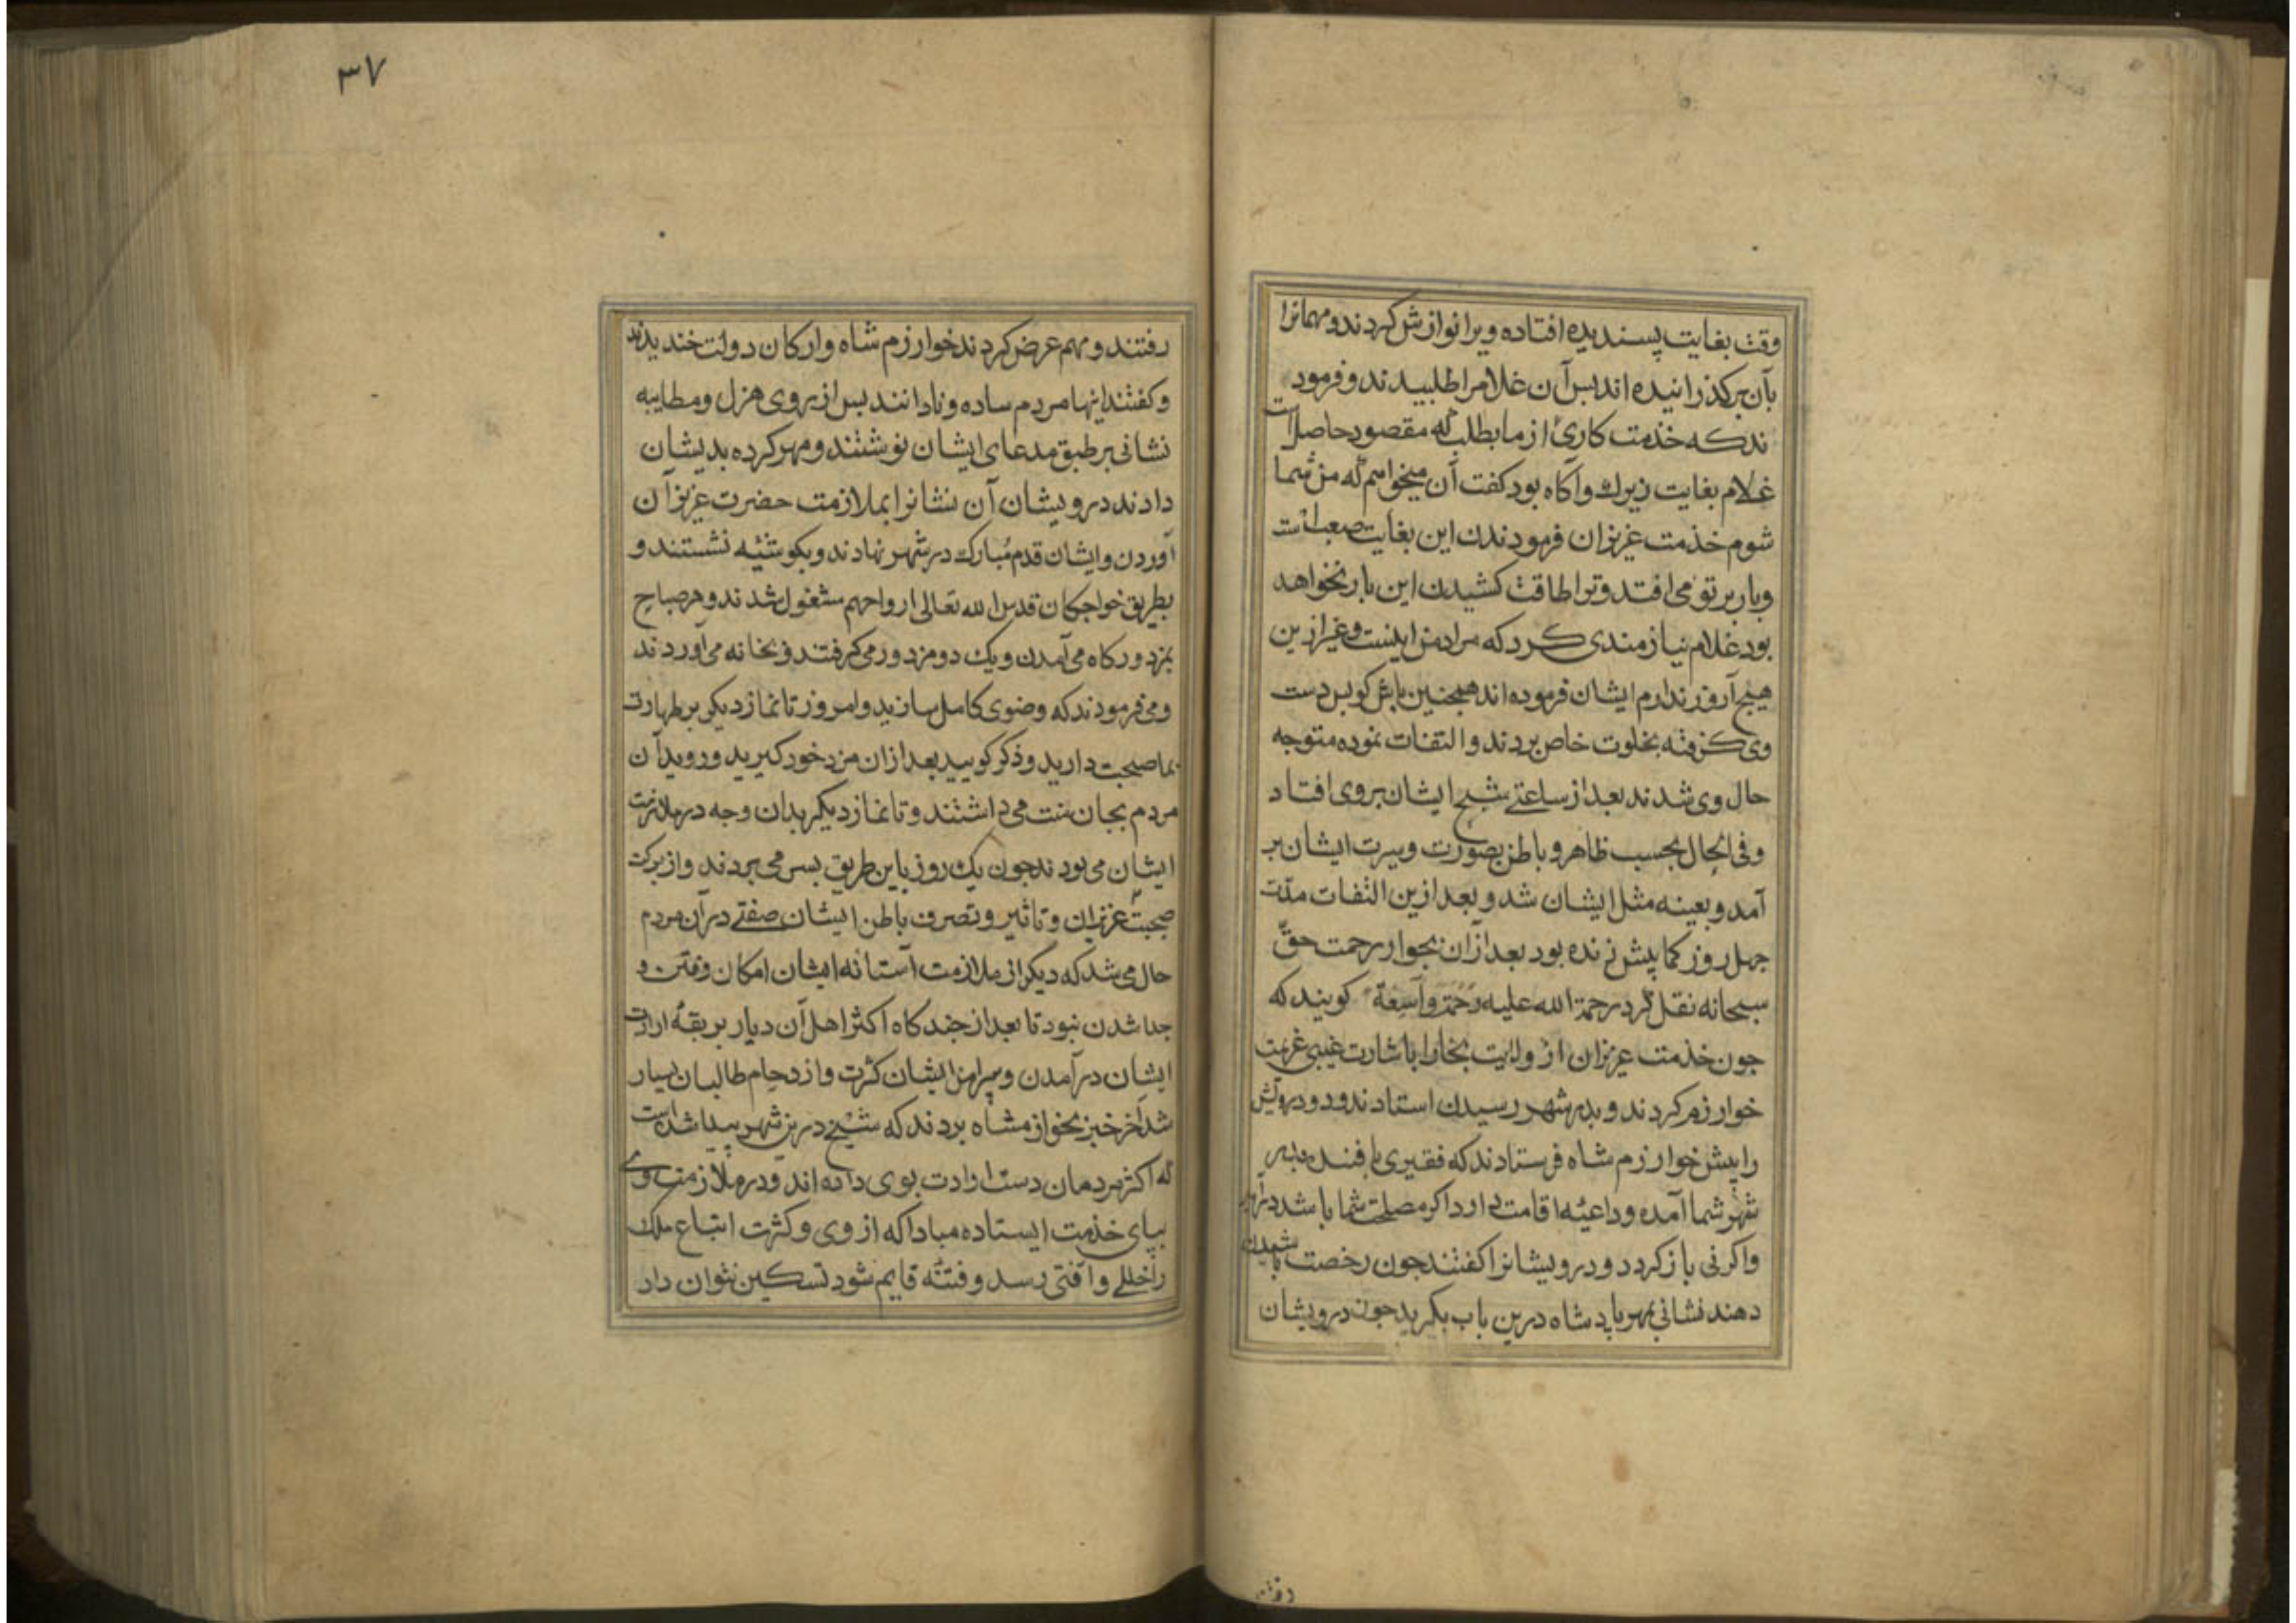 وقت بغایت پسندیده افتاده ویرا نوازش کردند و مهمانرا
بآن برکذرانیده اند بس آن غلامرا طلبیدند و فرمود
ند که خذمت کاری از ما بطلب که مقصود حاصل است
غلام بغایت زیرك و آکاه بود کفت آن میخواهم که من شما
شوم خذمت عزیزان فرمودندن این بغایت صعب است
و بار بر تو می افتد و ترا طاقت کشیدن این بار نخواهد
بود غلام نیازمندی کرد که مراد من اینست و غیر ازین
هیچ آروز ندارم ایشان فرموده اند همچنین باش کو بس دست
وی کرفته بخلوت خاص بردند و التفات نموده متوجه
حال وی شدند بعد از ساعتے شبح ایشان بروی افتاد
و فی الحال بحسب ظاهر و باطن بصورت و سیرت ایشان بر
آمد و بعینه مثل ایشان شد و بعد ازین التفات مدّت
جهل روز کما بیش زنده بود بعد ازان بجوار رحمت حقّ
سبحانه نقل کرد رحمة الله علیه رَحْمَةً وآسِعَةً کویند که
جون خذمت عزیزان از ولایت بخارا باشارت غیبی عزیمت
خوارزم کردند و بدر شهر رسیدن استادند و دو درویش
را پیش خوارزم شاه فرستادند که فقیری بافنده بدر
شهر شما آمده و داعیه اقامت دارد اکر مصلحت شما باشد درآید
و اکر نی باز کردد و درویشانرا کفتند جون رخصت باشیدن
دهند نشانی بمهر پادشاه درین باب بکیرید جون درویشان
دفتند
٣٧
رفتند و مهم عرض کردند خوارزم شاه و ارکان دولت خندیدند
و کفتند اینها مردم ساده و نادانند بس از روی هزل و مطایبه
نشانی بر طبق مدعای ایشان نوشتند و مهر کرده بدیشان
دادند درویشان آن نشانرا بملازمت حضرت عزیزآن
آوردن و ایشان قدم مُبارك در شهر نهادند و بکوشئه نشستند و
بطریق خواجکان قدس الله تعالی ارواحهم مشغول شدند و هر صباح
بمزدورکاه می آمدن و یك دو مزدور می کرفتند و بخانه می آوردند
و می فرمودند که وضوی کامل سازید و امروز تا نماز دیکر بر طهارت
بما صحبت دارید و ذکر کویید بعد ازان مزد خود کیرید و روید آن
مردم بجان منت می داشتند و تا نماز دیکر بدان وجه در ملازمت
ایشان می بودند جون یك روز باین طریق بسر می بردند و از برکت
صحبت عزیزان و تاثیر و تصرف باطن ایشان صفتے در آن مردم
حال می شد که دیکر از ملازمت آستانه ایشان امکان رفتن و
جدا شدن نبود تا بعد از جند کاه اکثر اهل آن دیار بر بقهٔ ارادت
ایشان درآمدن و بیرامن ایشان کثرت و ازدحام طالبان بسیار
شد آخر خبر بخوارزمشاه بردند که شیخے درین شهر پیدا شده است
که اکثر مردمان دست ارادت بوی داده اند و در ملازمت وی
ببای خذمت ایستاده مبادا که از وی و کثرت اتباع ملك
را خللے و آفتی رسد و فتنه قایم شود تسکین نتوان داد